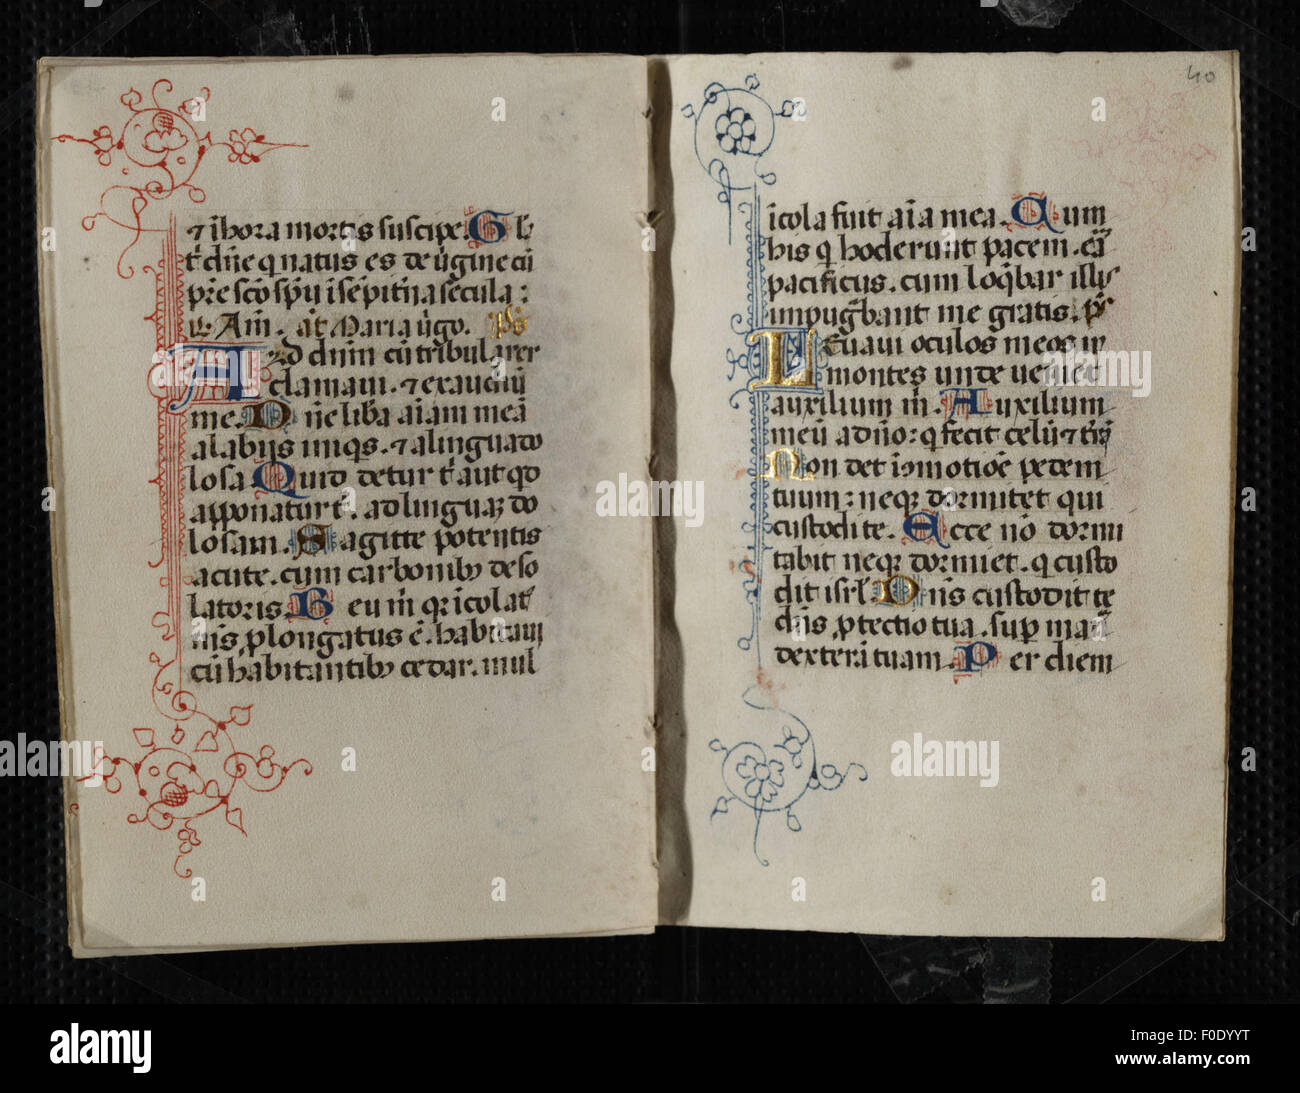 ⁊ ī hora mortis suscipe. Gl'
t' dn̄e q natus es de ũgine cũ
pr̄e scō spũ ĩ sẽpitña sẽcula:
Am̄. añt Maria ũgo. ps
AD dnm̄ cũ tribularer
clamaui. ⁊ exaudiũ
me. Dn̄e lib̃a ãiam meã
a labijs iniq̃s. ⁊ a lingua do
losa Quid detur t' aut qd
apponatur t'. ad linguaꝫ do
losam. Sagitte potentis
acute. cum carbonibꝫ deso
latoris. Heu m̃ qꝛ ĩcolat'
mĩs ꝓlongatus ē. habitaui
cũ habitantibꝫ cedar. mul
40
ĩcola fuit aĩa mea. Cum
his q̃ hoderunt pacem. erã
pacificus. cum loq̃bar illis
impug̃bant me gratis. ps
LEuaui oculos meos in
montes unde ueniet
auxilium m̃. Auxilium
meũ a dño: q̃ fecit celũ ⁊ t̃rã
Non det ĩ ꝯmotiōe pedem
tuum: neqꝫ dormitet qui
custodit te. Ecce nō dormi
tabit neqꝫ dormiet. q̃ custo
dit isrl̃. Dñs custodit te
dñs ꝓtectio tua. suꝑ manũ
dexterã tuam. Per diem
alamy
Image ID: F0DYYT
www.alamy.com